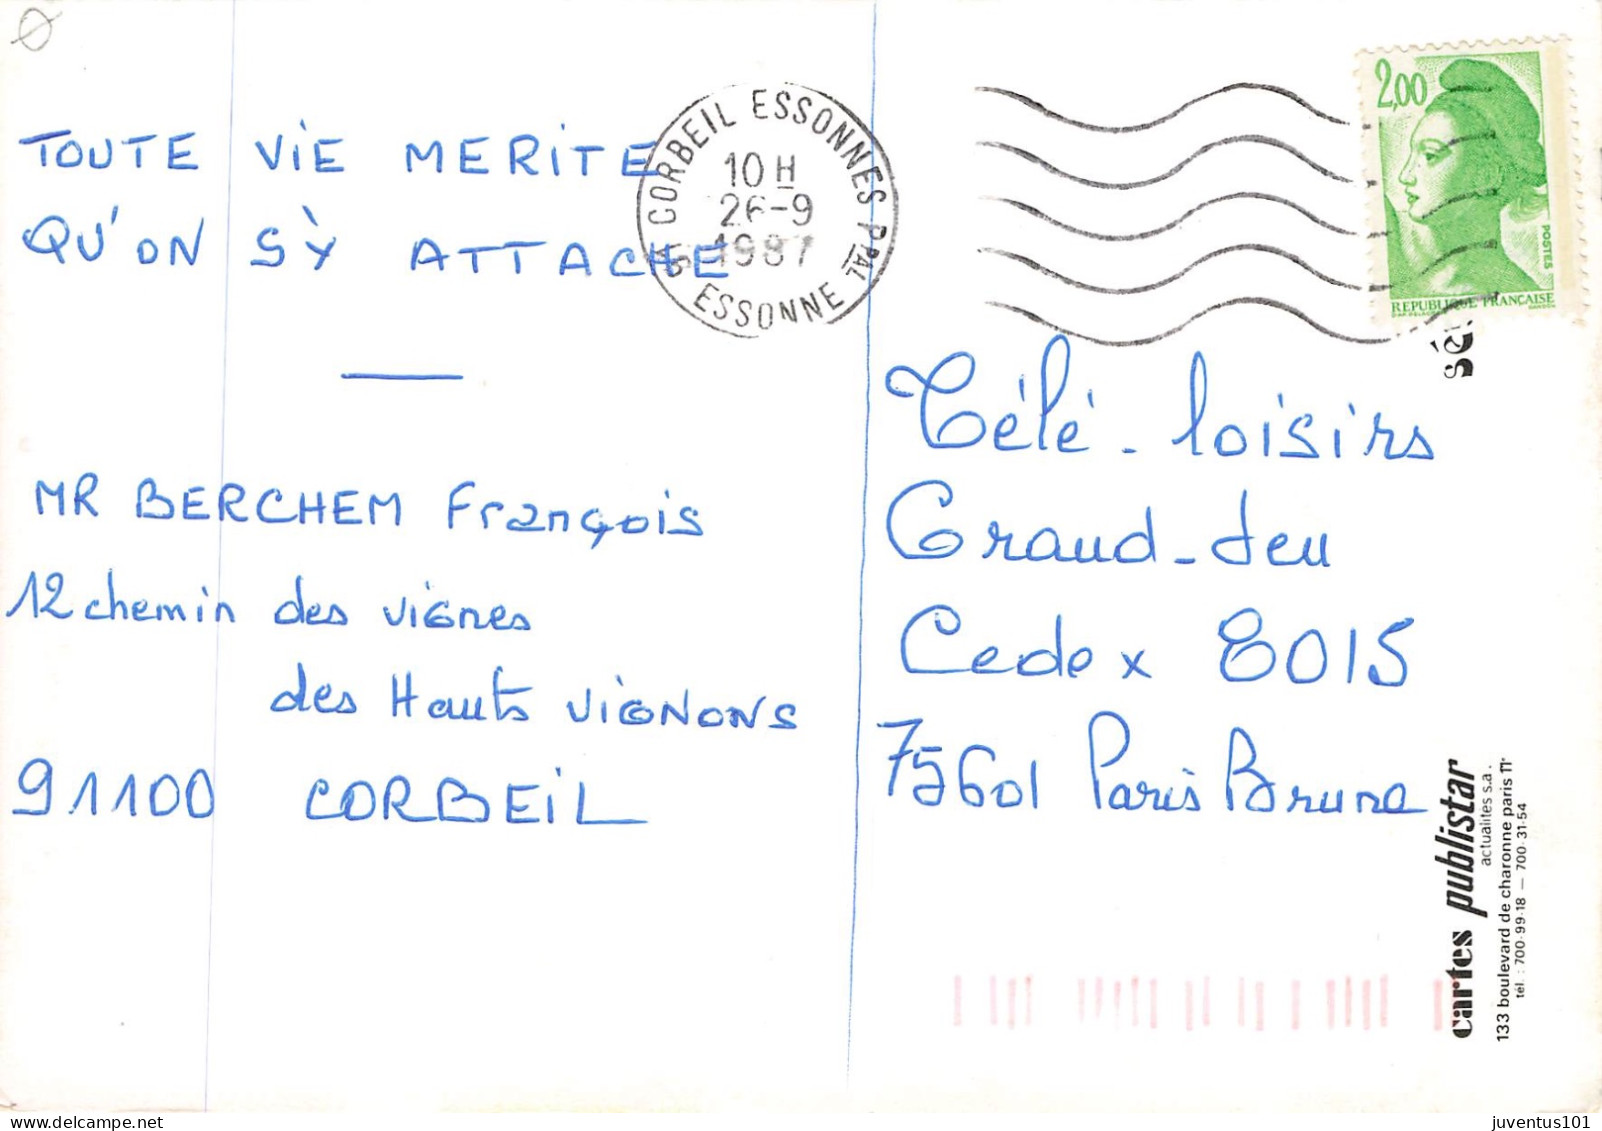 TOUTE VIE MERITE
QU'ON S'Y ATTACHE
MR BERCHEM François
12 chemin des vignes
des Hauts VIGNONS
91100 CORBEIL
CORBEIL ESSONNES PPAL
10 H
26-9
1987
91 ESSONNE
2,00
POSTES
REPUBLIQUE FRANÇAISE
Télé-loisirs
Grand-Jeu
Cedex 8015
75601 Paris Brune
cartes publistar
actualités s.a.
133 boulevard de charonne paris 11e
tél. : 700-99-18 — 700-31-54
juventus101